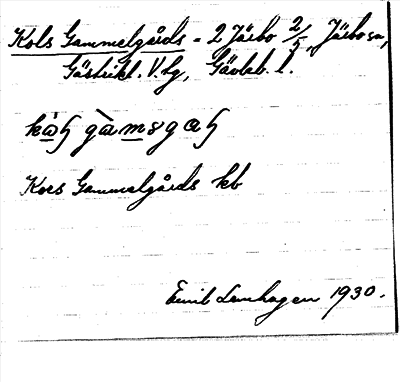 Kols Gammelgårds - 2 Järbo 2/5, Järbo sn,
Gästrikl. V. hg, Gävleb. l.
Kors Gammelgårds kb
Emil Lenhagen 1930.